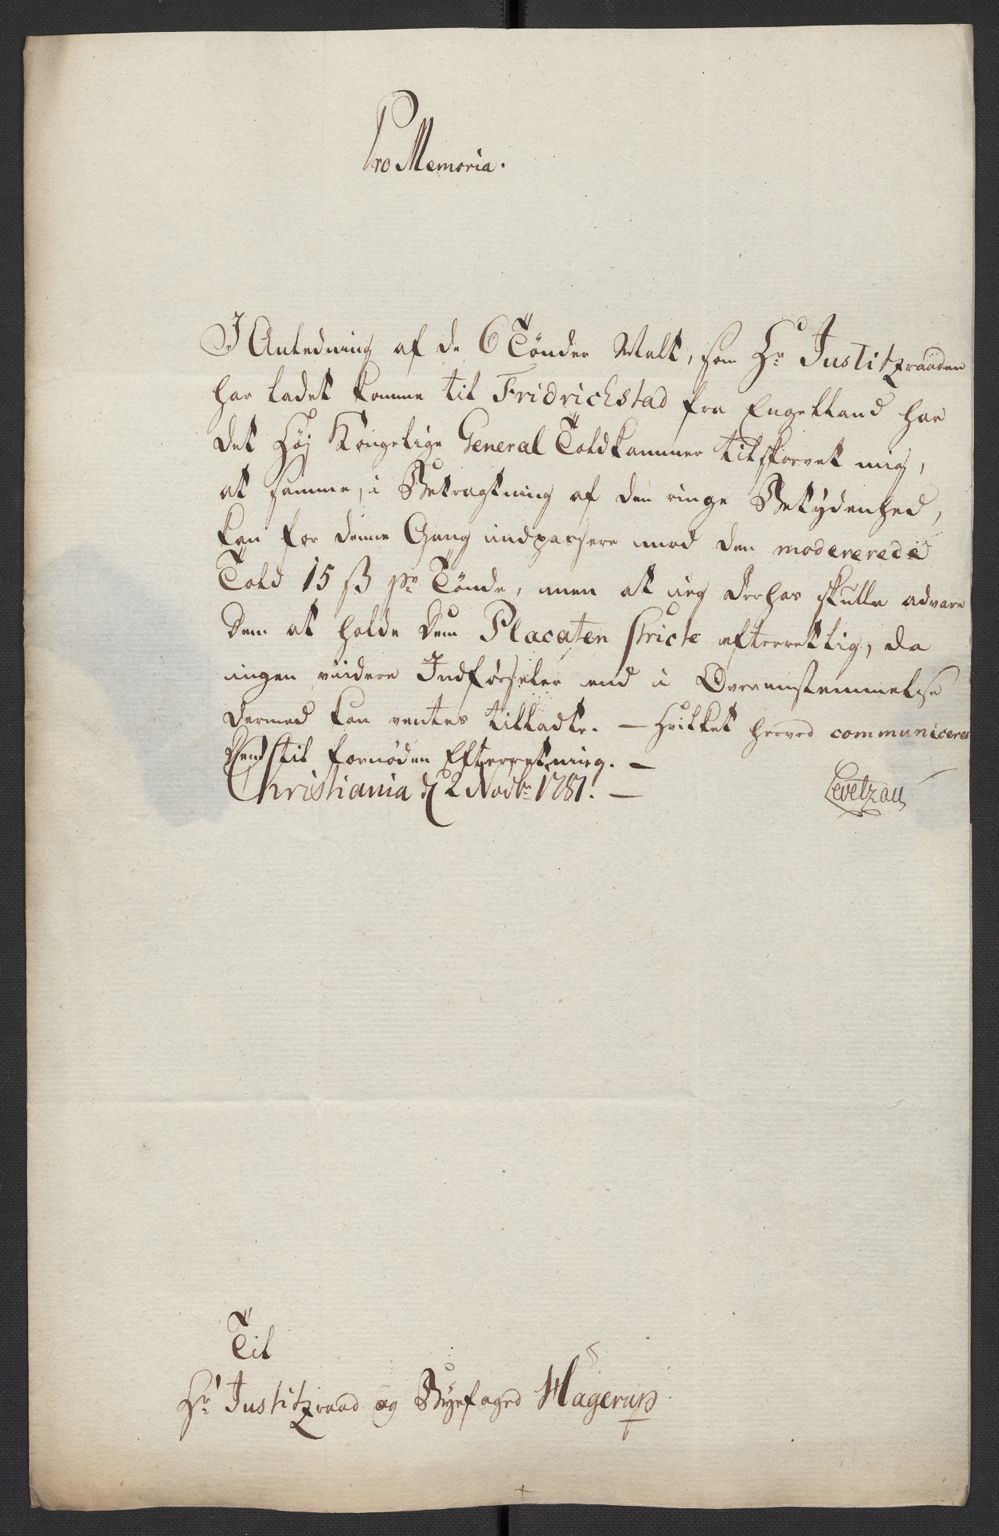 Pro Memoria.
I Anledning af de 6 Tønder Malt, som Hr Justitzraaden
har ladet komme til Fridrichstad fra Engelland har
det Høj Kongelige General Toldkammer tilskrevet mig,
at samme, i Betragtning af den ringe Betydenhed,
kan for denne Gang indpassere mod den modererede
Told 15 ß pr Tønde, men at jeg derhos skulle advare
Dem at holde dem Placaten stricte efterrettlig, da
ingen viidere Indførseler end i Overensstemmelse
dermed kan ventes tilladte. – Hvilket herved communiceres
Dem til fornøden Efterretning. –
Christiania d 2 Novbr 1781. –
Levetzau
Til
Hr Justitzraad og Byefoged Hagerup